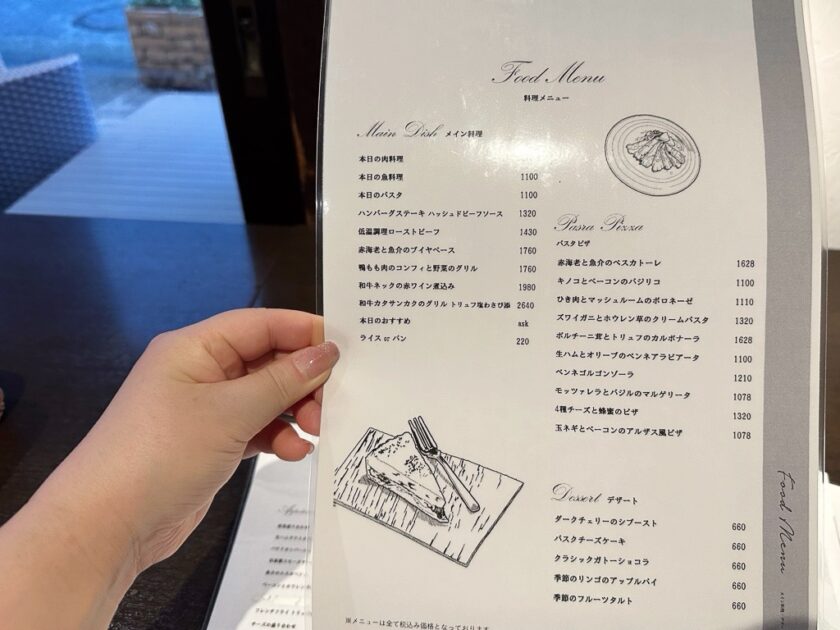 Food Menu
料理メニュー
Main Dish メイン料理
本日の肉料理
本日の魚料理 1100
本日のパスタ 1100
ハンバーグステーキ ハッシュドビーフソース 1320
低温調理ローストビーフ 1430
赤海老と魚介のブイヤベース 1760
鴨もも肉のコンフィと野菜のグリル 1760
和牛ネックの赤ワイン煮込み 1980
和牛カタサンカクのグリル トリュフ塩わさび添 2640
本日のおすすめ ask
ライス or パン 220
Pasra Pizza
パスタピザ
赤海老と魚介のペスカトーレ 1628
キノコとベーコンのバジリコ 1100
ひき肉とマッシュルームのボロネーゼ 1110
ズワイガニとホウレン草のクリームパスタ 1320
ポルチーニ茸とトリュフのカルボナーラ 1628
生ハムとオリーブのペンネアラビアータ 1100
ペンネゴルゴンゾーラ 1210
モッツァレラとバジルのマルゲリータ 1078
4種チーズと蜂蜜のピザ 1320
玉ネギとベーコンのアルザス風ピザ 1078
Dessert デザート
ダークチェリーのシブースト 660
バスクチーズケーキ 660
クラシックガトーショコラ 660
季節のリンゴのアップルパイ 660
季節のフルーツタルト 660
※メニューは全て税込み価格となっております
Food Menu
フレンチフライ トリュ
チーズの盛り合わせ